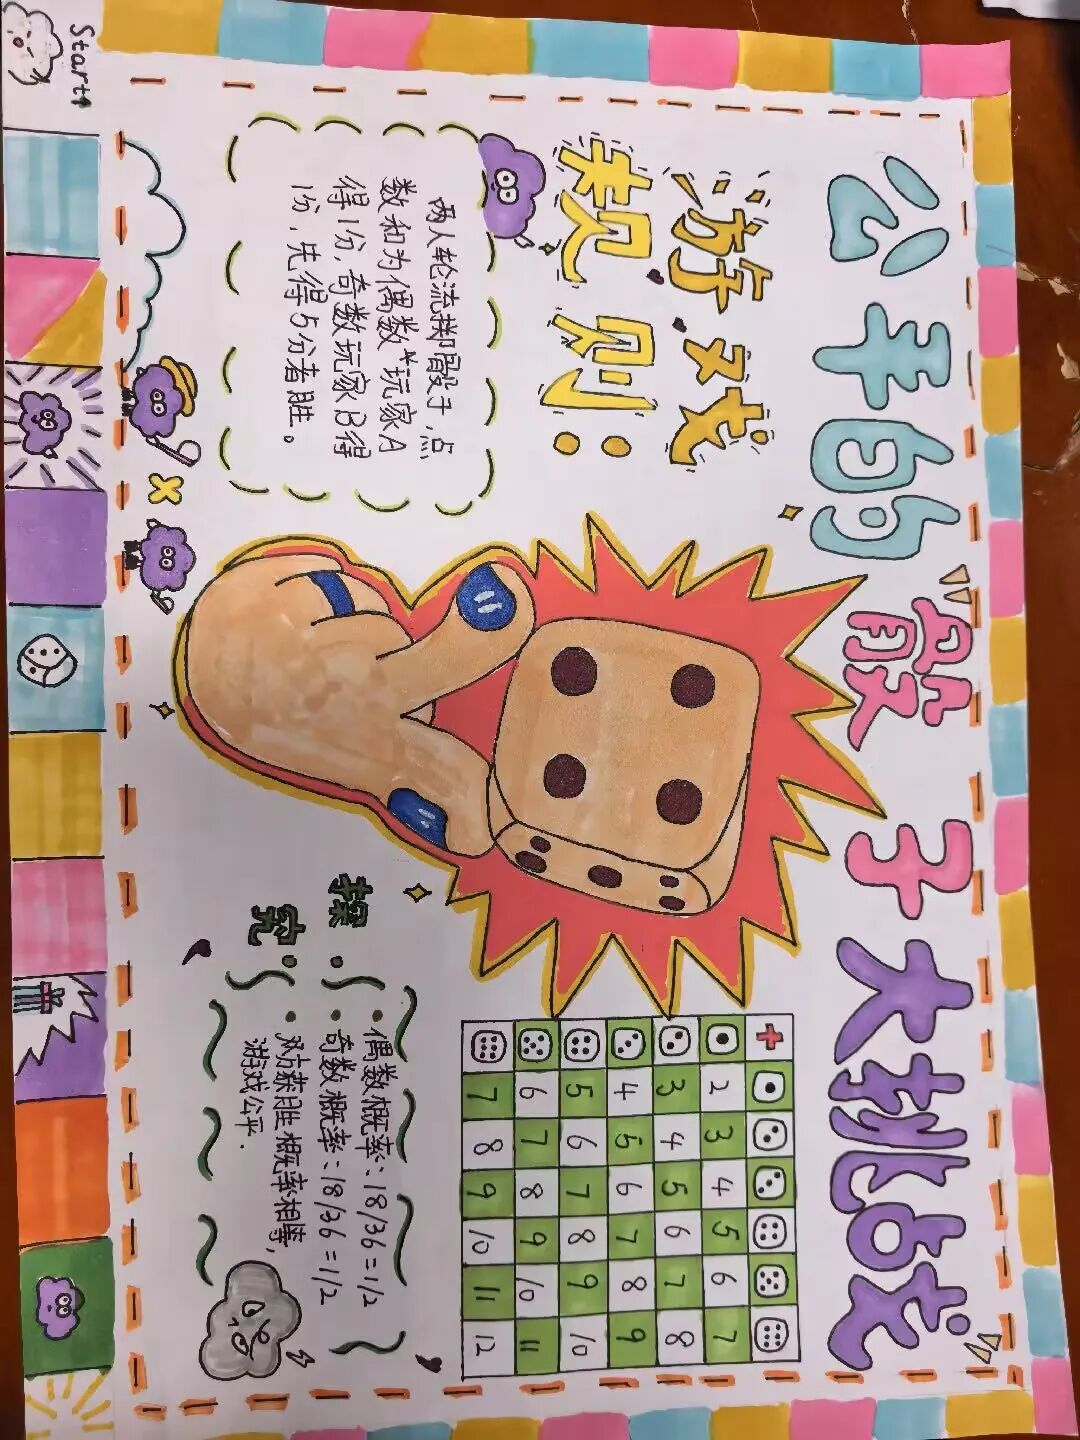 公平的骰子大挑战
游戏
规则:
两人轮流掷骰子,点
数和为偶数玩家A
得1分,奇数玩家B得
1分,先得5分者胜。
+
2 3 4 5 6 7
3 4 5 6 7 8
4 5 6 7 8 9
5 6 7 8 9 10
6 7 8 9 10 11
7 8 9 10 11 12
探
究:
• 偶数概率:18/36=1/2
• 奇数概率:18/36=1/2
• 双方获胜概率相等,
游戏公平.
Start↑